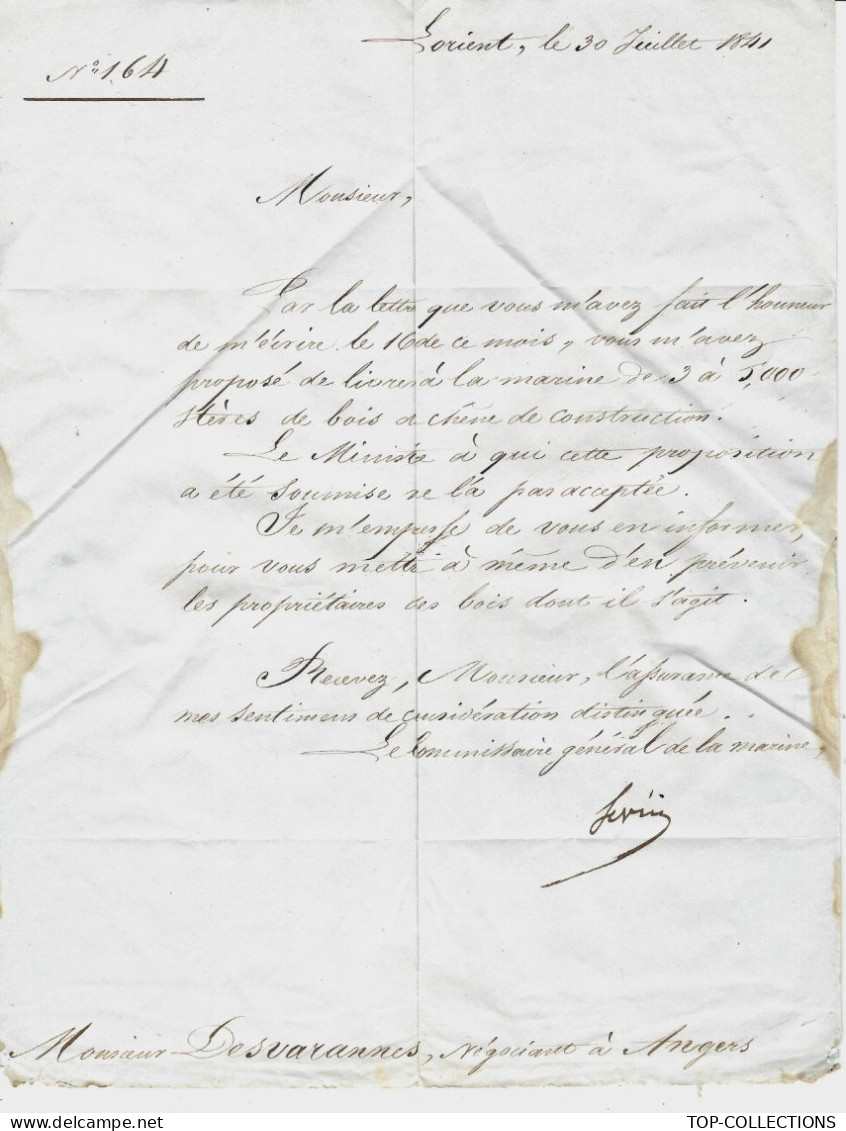 Lorient, le 30 Juillet 1841
N° 164
Monsieur,
Par la lettre que vous m'avez fait l'honneur
de m'écrire le 16 de ce mois, vous m'avez
proposé de livrer à la marine de 3 à 5,000
stères de bois de chêne de construction.
Le Ministre à qui cette proposition
a été soumise ne l'a pas acceptée.
Je m'empresse de vous en informer,
pour vous mettre à même d'en prévenir
les propriétaires des bois dont il s'agit.
Recevez, Monsieur, l'assurance de
mes sentimens de considération distinguée.
Le Commissaire général de la marine,
Monsieur Desvarannes, Négociant à Angers
TOP-COLLECTIONS